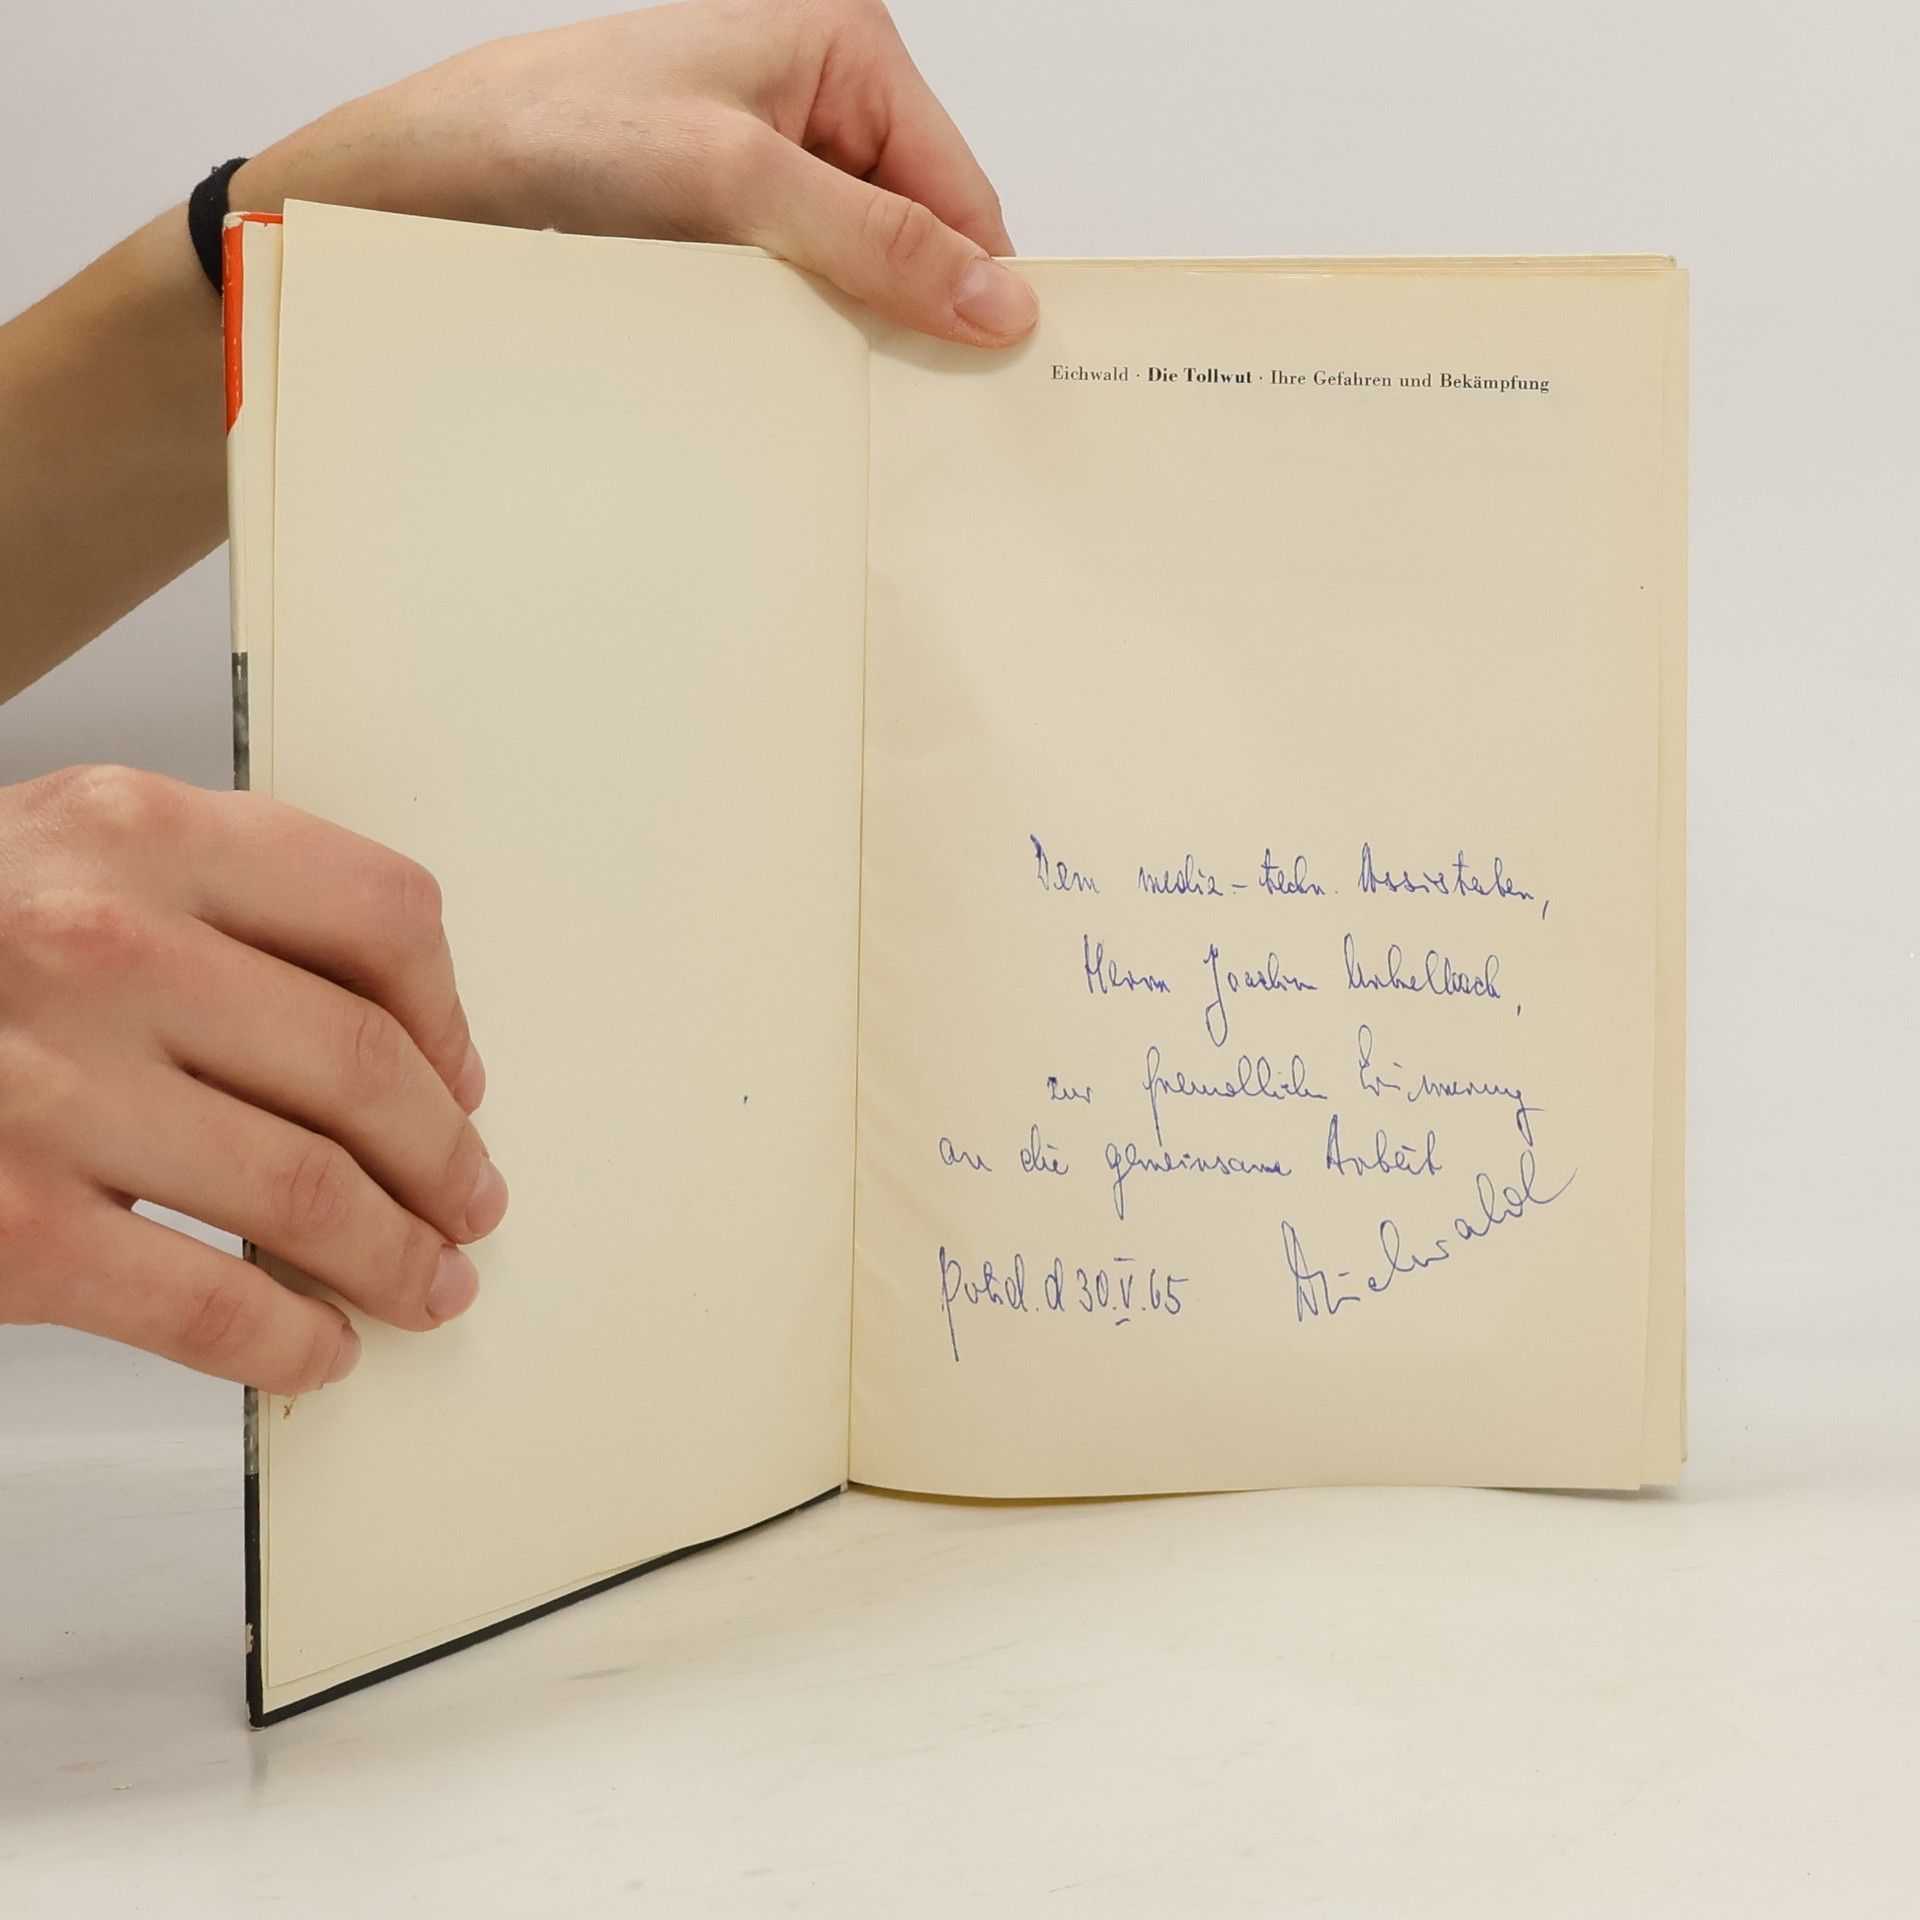 Eichwald · Die Tollwut · Ihre Gefahren und Bekämpfung
Dem mediz.- techn. Assistenten,
Herrn Joachim
zur freundlichen Erinnerung
an die gemeinsame Arbeit
d 30.V.65 Eichwald